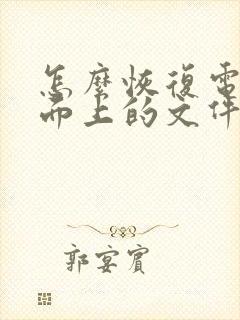 怎麼恢復電
而上的文件
郭宴賓